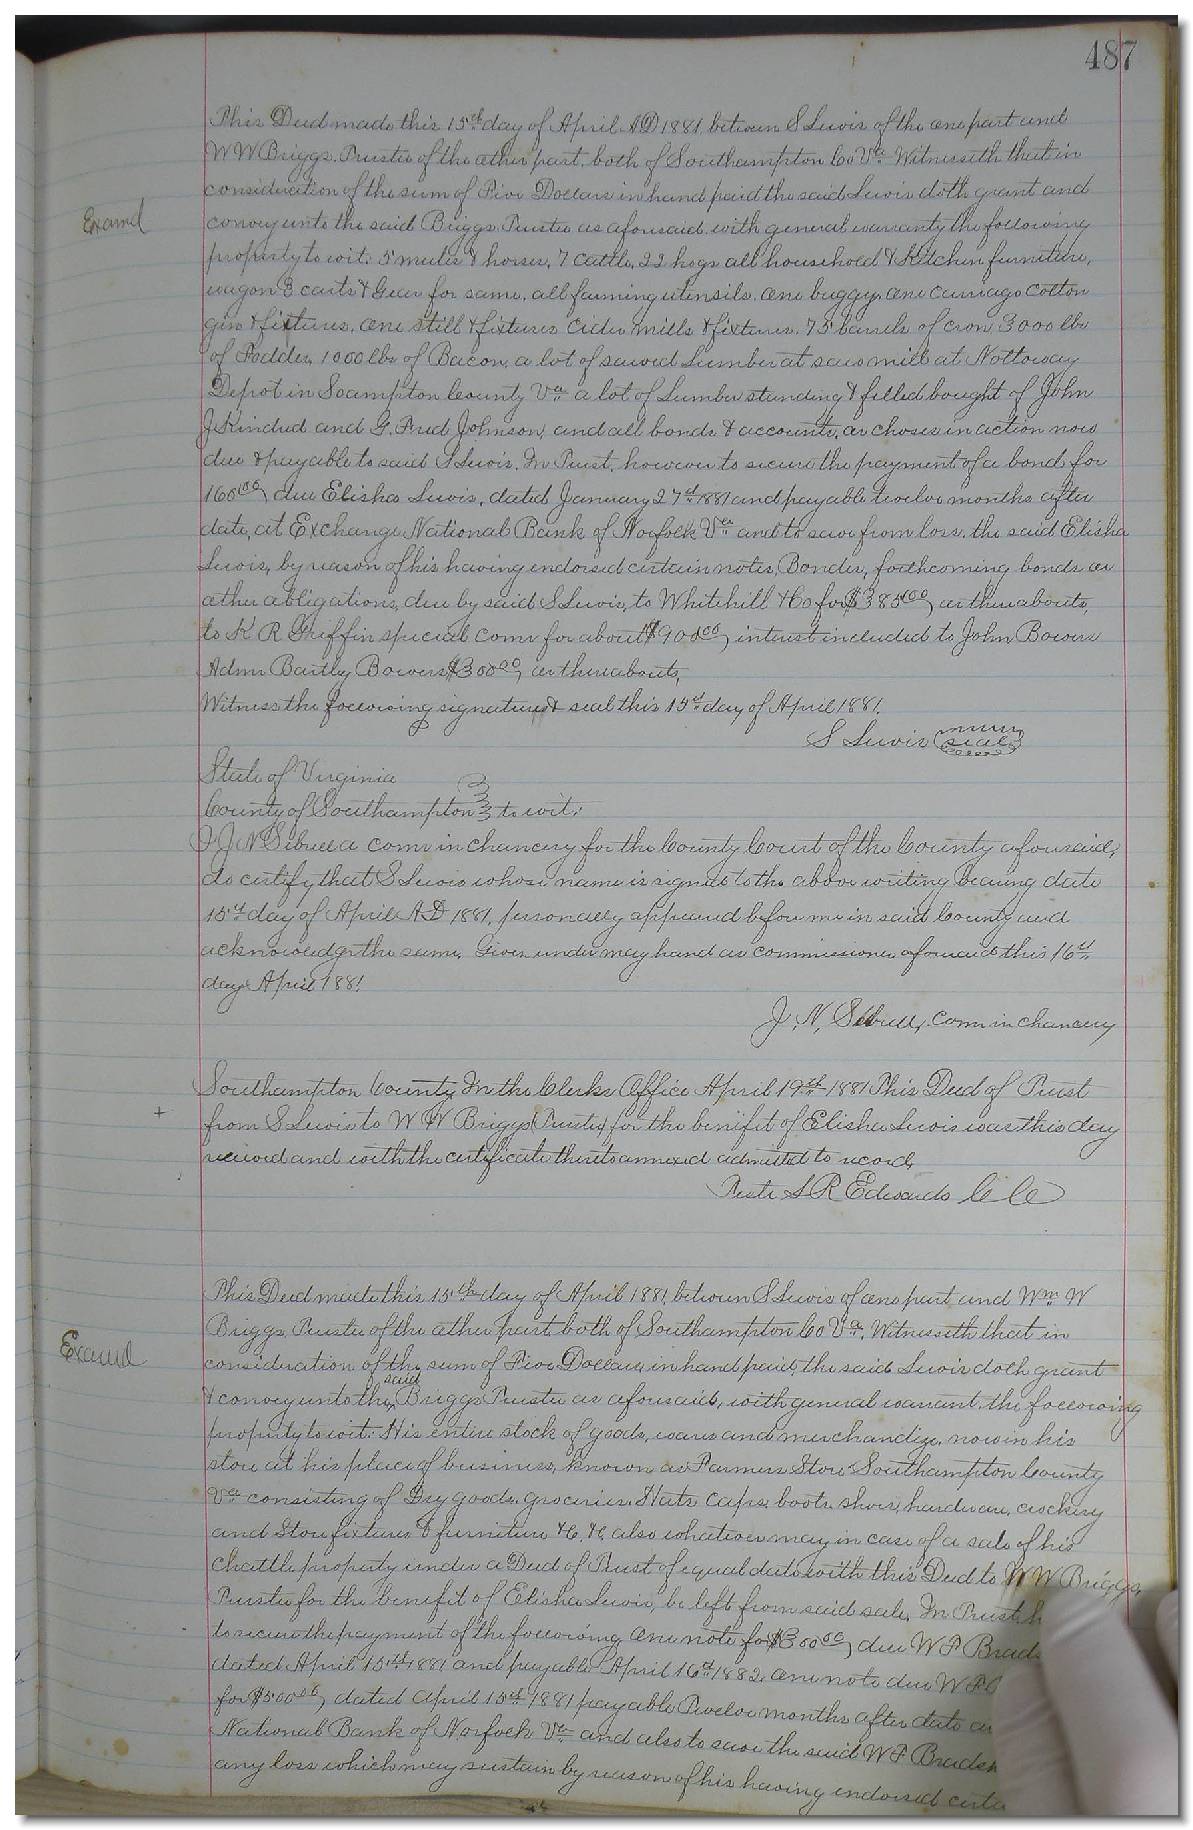 487
This Deed made this 15th day of April AD 1881 between S Lewis of the one part and
W W Briggs Trustee of the other part, both of Southampton Co Va Witnesseth that in
consideration of the sum of Five Dollars in hand paid the said Lewis doth grant and
Examd
convey unto the said Briggs Trustee as aforesaid with general warranty the following
property to wit: 5 mules & horses, 7 cattle, 22 hogs all household & Kitchen furniture,
wagon 3 carts & Gear for same, all farming utensils, one buggy, one carriage Cotton
gin & fixtures, one still & fixtures Cider mills & fixtures. 75 barrels of corn, 3000 lbs
of Fodder, 1000 lbs of Bacon, a lot of sawed Lumber at saw mill at Nottoway
Depot in Soampton County Va a lot of Lumber standing & felled bought of John
J Kindred and G. Fred Johnson, and all bonds & accounts, or choses in action now
due & payable to said S Lewis. In Trust, however to secure the payment of a bond for
due Elisha Lewis, dated January 27th 1881 and payable twelve months after
date, at Exchange National Bank of Norfolk Va and to save from loss, the said Elisha
Lewis, by reason of his having endorsed certain notes, Bonds, forthcoming bonds or
other obligations, due by said S Lewis, to Whitehill & Co for $385 00, or thereabouts,
to K R Griffin special Comr for about $900 00, interest included to John Bowers
Admr Bartley Bowers $300 00, or thereabouts,
Witness the following signature & seal this 15th day of April 1881.
S Lewis seal
State of Virginia
County of Southampton to wit:
I J N Sebrell a comr in chancery for the County Court of the County aforesaid,
do certify that S Lewis whose name is signed to the above writing bearing date
15th day of April AD 1881, personally appeared before me in said County and
acknowledge the same, Given under my hand as commissioner aforesaid this 16th
day April 1881
J. N, Sebrell, Comr in chancery
Southampton County In the Clerks Office April 19th 1881 This Deed of Trust
+
from S Lewis to W W Briggs (Trustee) for the benifit of Elisha Lewis was this day
received and with the certificate thereto annexed admitted to record,
Teste L R Edwards C C
This Deed made this 15th day of April 1881, between S Lewis of one part and Wm W
Briggs, Trustee of the other part both of Southampton Co Va. Witnesseth that in
Examd
consideration of the sum of Five Dollars, in hand paid, the said Lewis doth grant
& convey unto the said Briggs Trustee as aforesaid, with general warrant, the following
property to wit: His entire stock of goods, wares and merchandize, now in his
store at his place of business, known as Farmers Store Southampton County
Va consisting of Dry goods, groceries, Hats, Caps, boots, shoes, hardware, crockery
and Store fixtures & furniture &C. &C, also whatever may in case of a sale of his
chattle property under a Deed of Trust of equal date with this Deed to W W Briggs,
Trustee for the benefit of Elisha Lewis, be left from said sale, In Trust, h
to secure the payment of the following One note for $300 00, due W F Brads
dated April 15th 1881 and payable April 16th 1882, one note due W F
for $500 00, dated April 15th 1881 payable Twelve months after date
National Bank of Norfolk Va and also to save the said W F Bradsh
any loss which may sustain by reason of his having endorsed certa